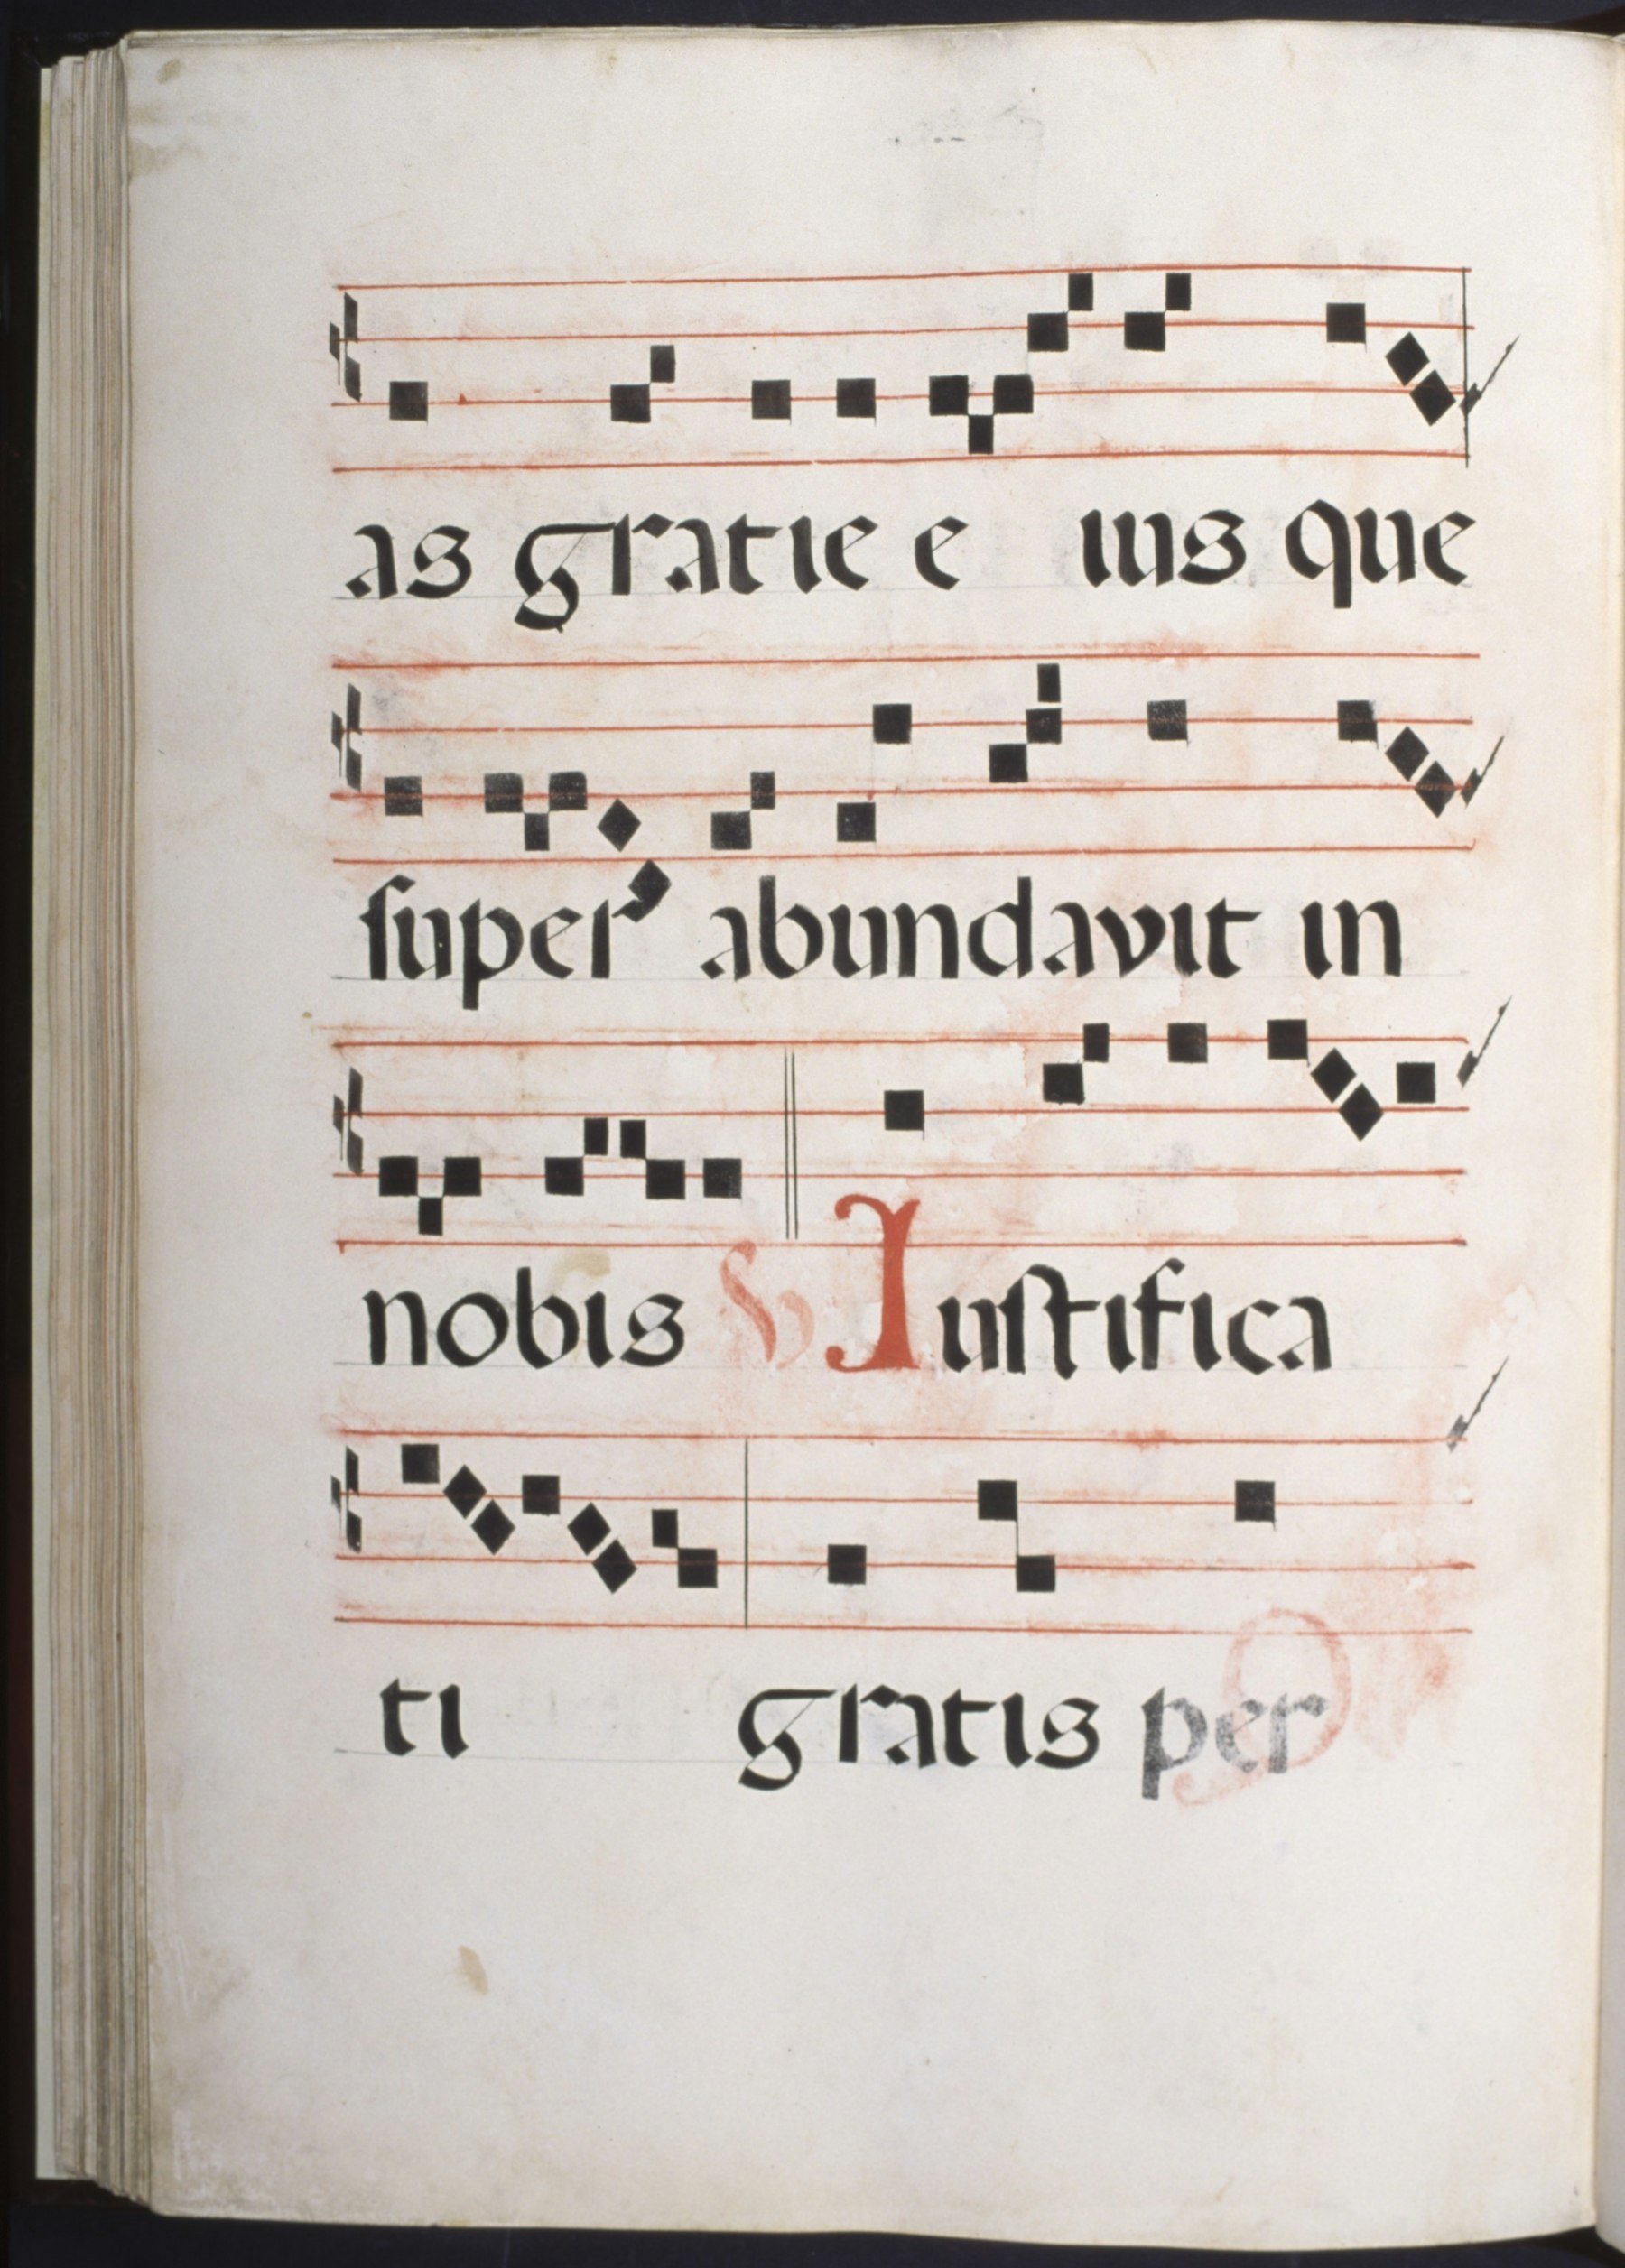 as gratie e ius que
super abundavit in
nobis V Iustifica
ti gratis per